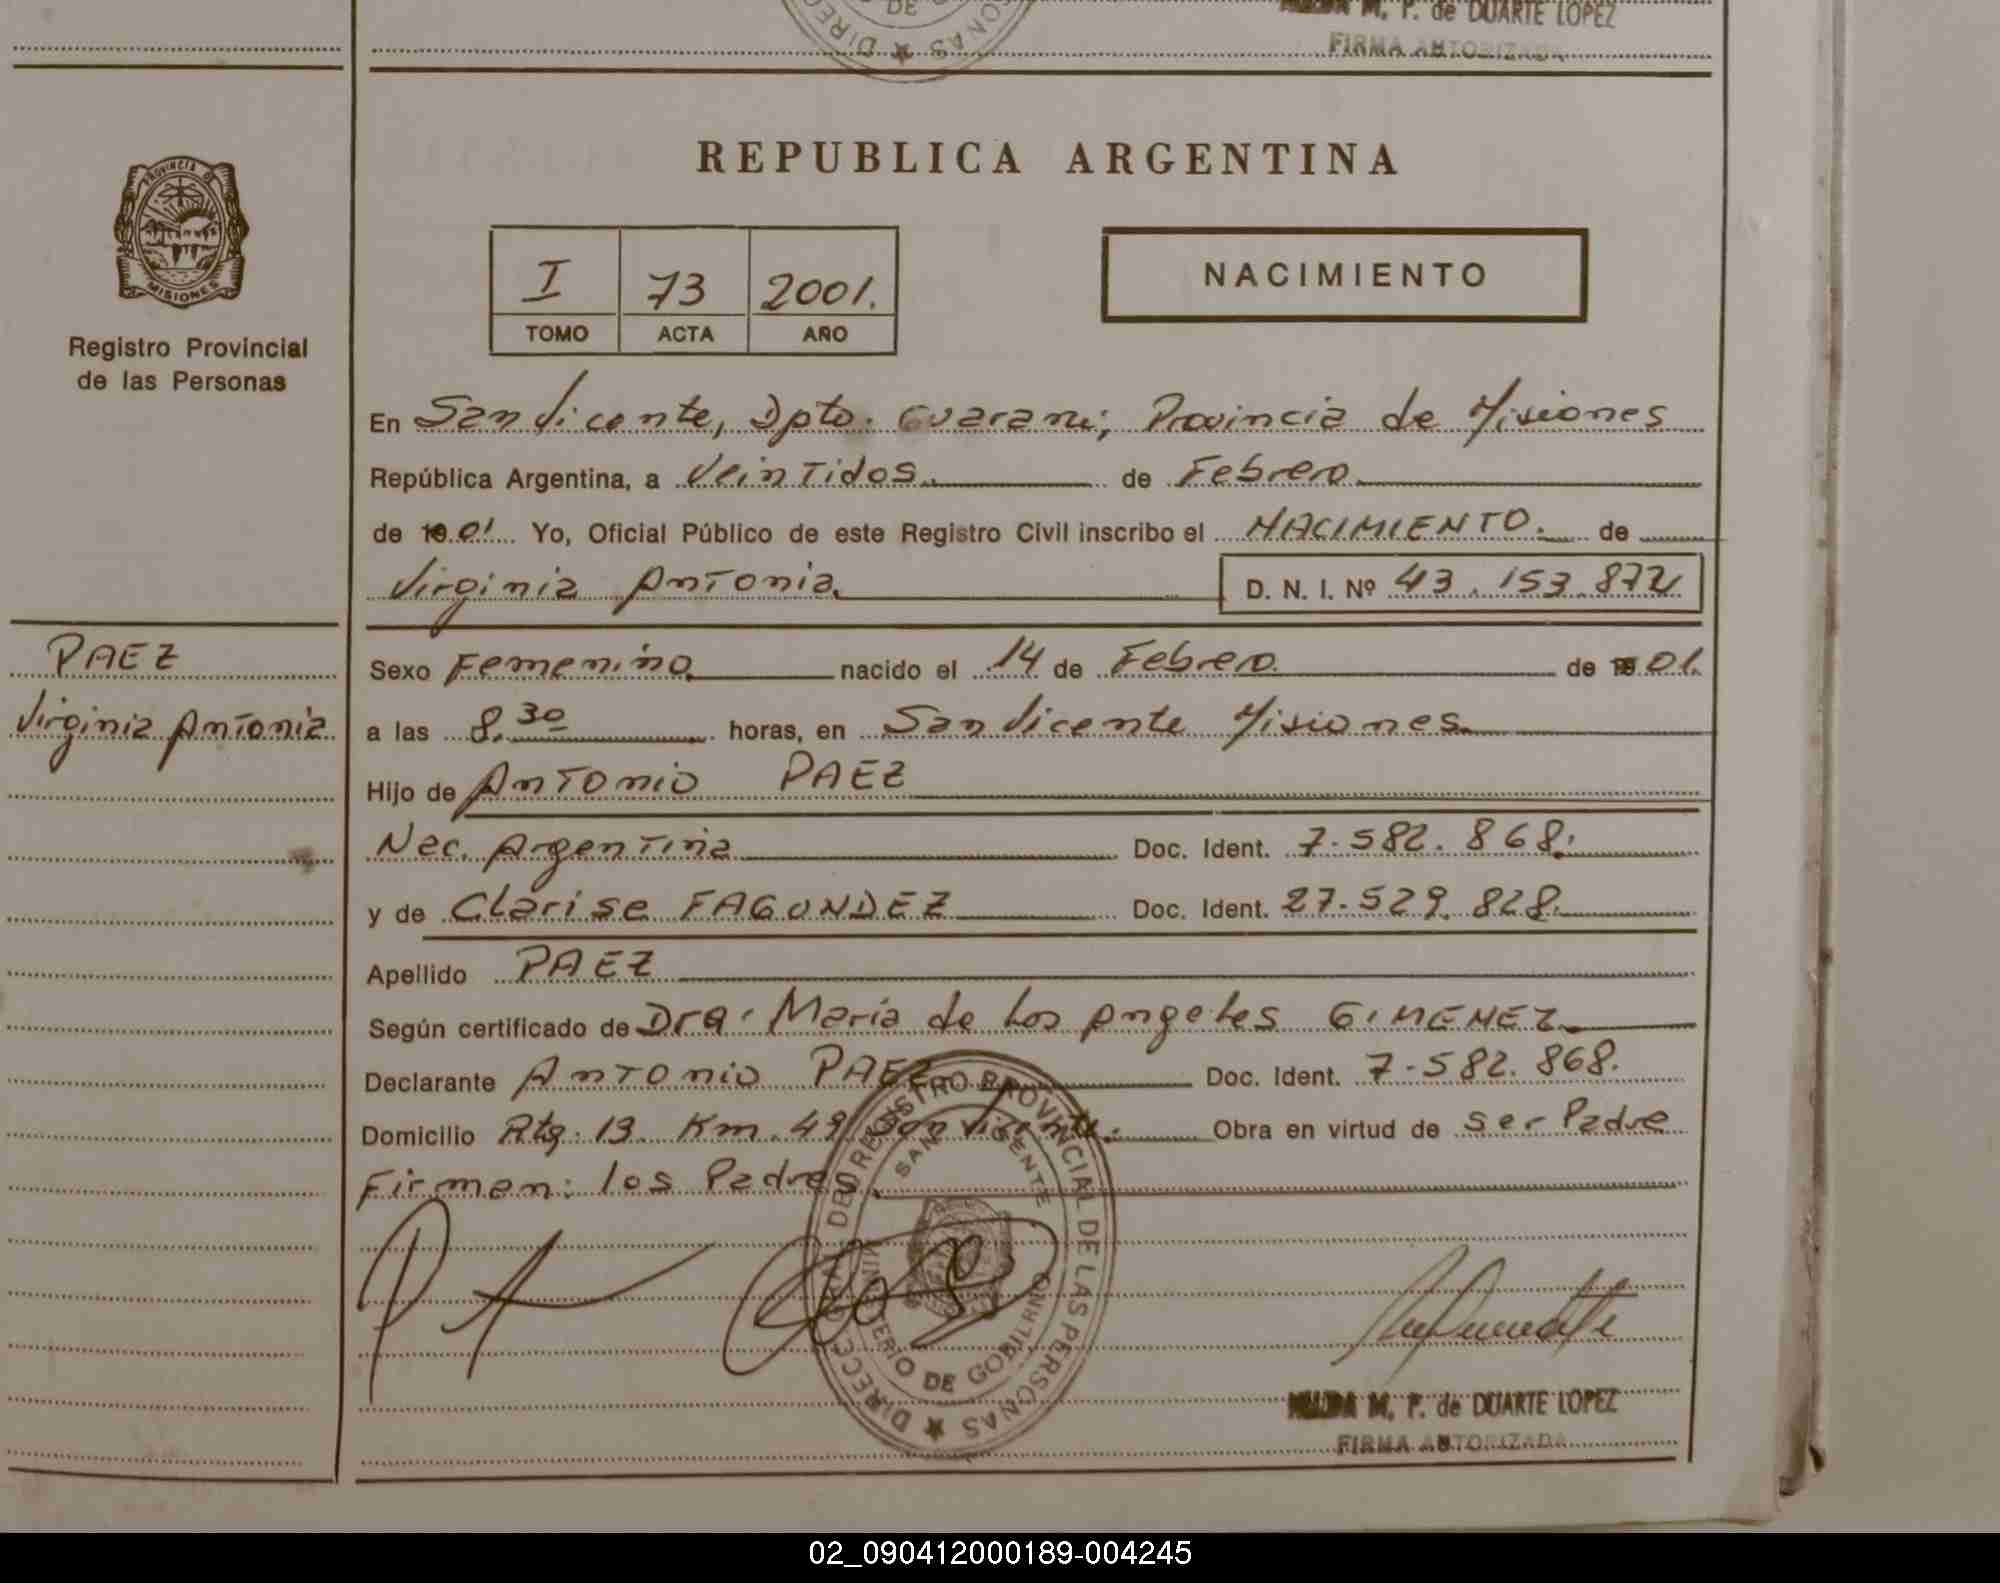 M. P. de DUARTE LOPEZ
FIRMA AUTORIZADA
PROVINCIA DE
MISIONES
Registro Provincial
de las Personas
REPUBLICA ARGENTINA
I 73 2001.
TOMO ACTA AÑO
NACIMIENTO
En San Vicente, Dpto. Guarani; Provincia de Misiones
República Argentina, a Veintidos. de Febrero.
de 01 Yo, Oficial Público de este Registro Civil inscribo el NACIMIENTO. de
Virginia Antonia. D. N. I. Nº 43.153.872
PAEZ
Virginia Antonia.
Sexo Femenino nacido el 14 de Febrero. de 01.
a las 8.30 horas, en San Vicente Misiones.
Hijo de Antonio PAEZ
Nac. Argentina Doc. Ident. 7.582.868.
y de Clarise FAGUNDEZ Doc. Ident. 27.529.828.
Apellido PAEZ
Según certificado de Dra. Maria de Los Angeles GIMENEZ
Declarante Antonio PAEZ Doc. Ident. 7.582.868.
Domicilio Rta. 13. Km. 49 San Vicente. Obra en virtud de ser Padre
Firman: los Padres.
DIRECC. GRAL. DEL REGISTRO PROVINCIAL DE LAS PERSONAS
SAN VICENTE
MINISTERIO DE GOBIERNO
M. P. de DUARTE LOPEZ
FIRMA AUTORIZADA
02_090412000189-004245